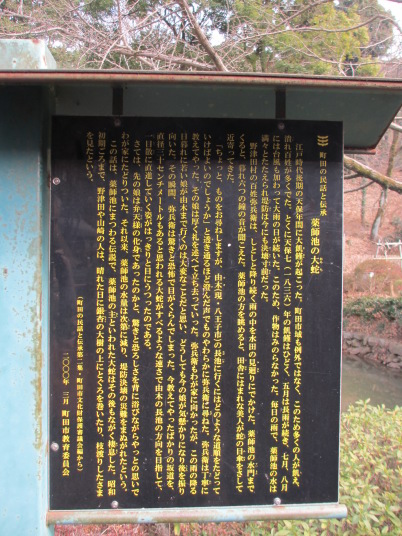 町田の民話と伝承
薬師池の大蛇
江戸時代後期の天保年間に大飢饉が起こった。町田市域も例外ではなく、このため多くの人が飢え、
治れ百姓が多くでた。とくに天保七（一八三六）年の飢饉はひどく、五月は長雨が続き、七月、八月
には台風も加わって大雨の日が続いた。このため、作物はみのらなかった。毎日の雨で、薬師池の水は
満々とたたえられ堤防は今にも決壊寸前だった。
野津田村の百姓弥兵衛は、しとしと降り続く雨の中を水田の見廻りにでかけた。薬師池の水門まで
くると、暮れ六つの鐘の音が聞こえた。薬師池の方を眺めると、田舎にはまれな美人が蛇の目傘をさして
近寄ってきた。
「ちょっと、ものをお尋ねしますが、由木（現・八王子市）の長池に行くにはどのような道順をたどって
いけばよいのでしょうか」と透き通るほど澄んだ声でものやわらかに弥兵衛に尋ねた。弥兵衛は丁寧に
教えてやった。この娘は厚く礼を述べて立ち去っていった。弥兵衛もわが家に向かったが、この雨の降る
日暮れに若い娘が由木まで行くのは大変なことだ、と思い、どうしても今の娘が気懸かりになり後を振り
向いた。その瞬間、弥兵衛は驚きと恐怖で目がくらんでしまった。今教えてやったばかりの坂道を、
直径三十センチメートルもあると思われる大蛇がすべるような速さで由木の長池の方向を目指して、
一目散に直進していく姿がはっきりと目にうつったのである。
さては、先の娘は弁天様の化身であったのかと、驚きと恐ろしさを背に浴びながらやっとの思いで
わが家にたどりついた。それ以来、薬師池の水量は次第に減り、堤防決壊の災難をまぬがれたという。
この話は、薬師池にまつわる伝説だが、薬師池の主といわれた大蛇はその後もながく棲息した。昭和
初期ごろまで、野津田や山崎の人は、晴れた日に銀杏の大樹の上にとぐろを巻いたり、枝渡りしたさま
を見たという。
（町田の民話と伝承第二集・町田市文化財保護審議会編から）
二〇〇〇年 三月 町田市教育委員会